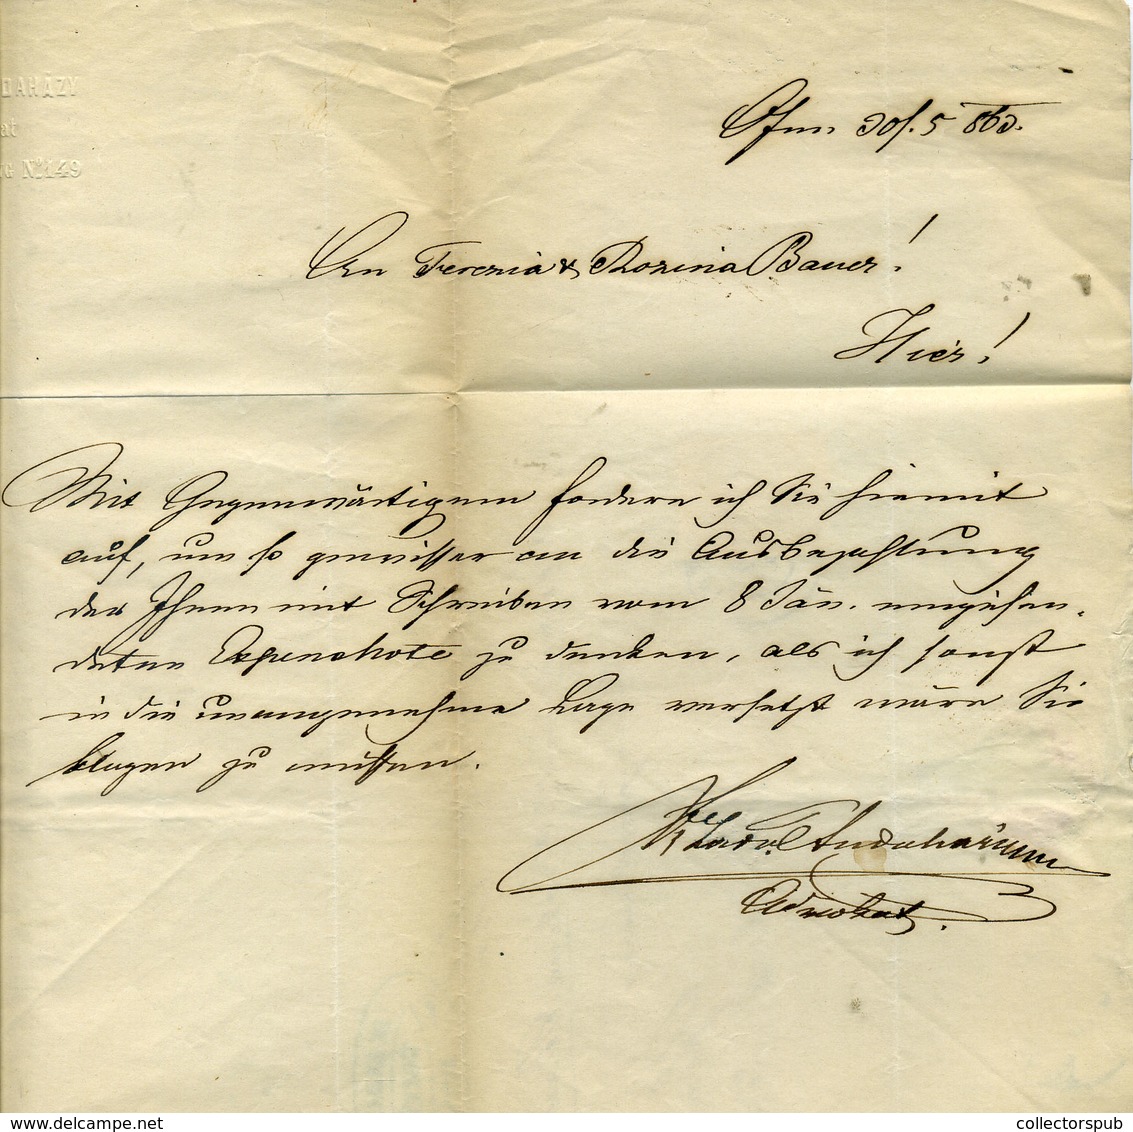 DAHÁZY
at
G No 149
Ofen 30/.5 863.
An Terezia & Rozina Bauer!
Hier!
Mit Gegenwärtigem fordere ich Sie hiemit
auf, um so gewisser an die Ausbezahlung
der Ihnen mit Schreiben vom 8 Jän. eingesen-
deten Expensnote zu denken, als ich sonst
in die unangenehme Lage versetzt wäre Sie
klagen zu müssen.
Advokat.
collectorspub